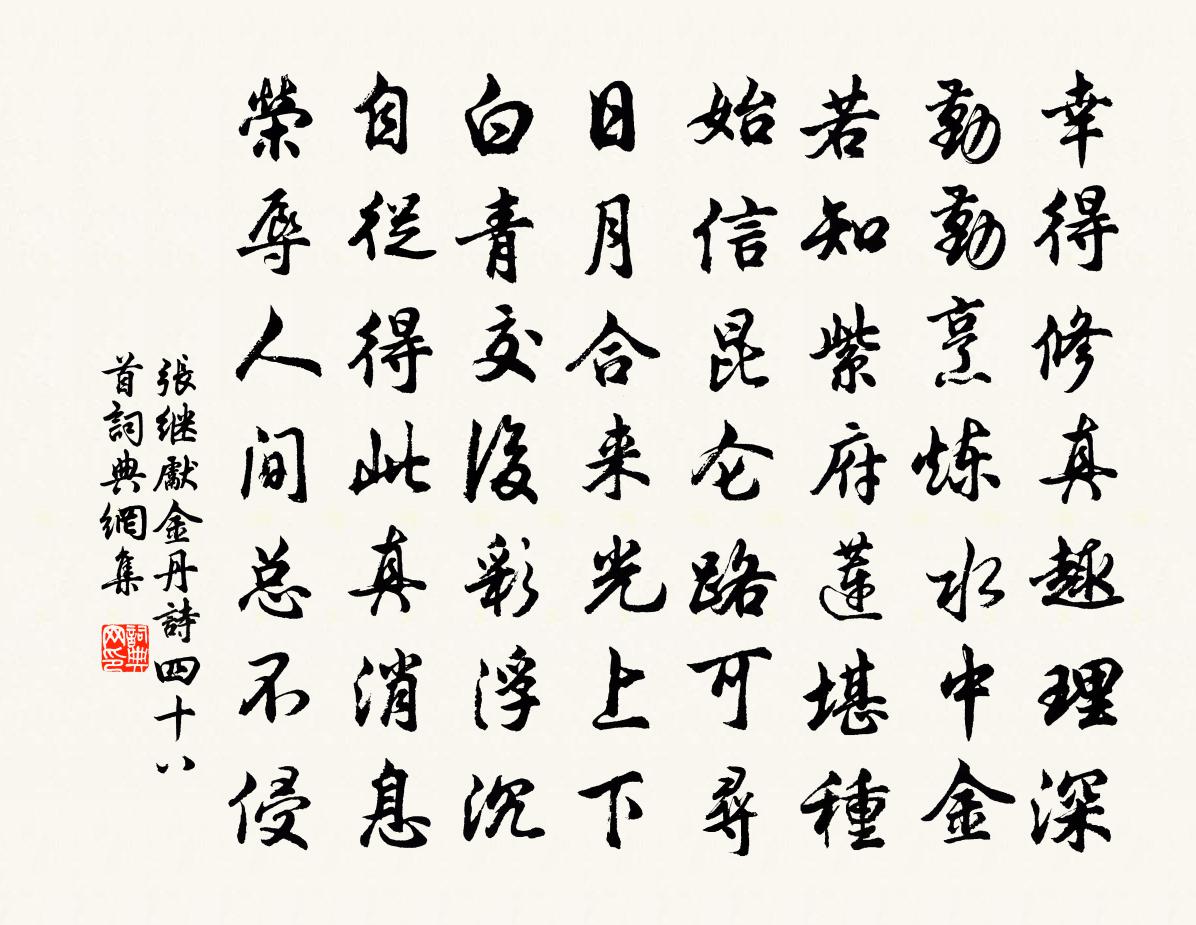 幸得修真趣理深
勤勤烹炼水中金
若知紫府莲堪種
始信昆仑路可尋
日月合来光上下
白青交後彩浮沉
自從得此真消息
榮辱人间总不侵
張继獻金丹詩四十八
首詞典網集
詞典
网印